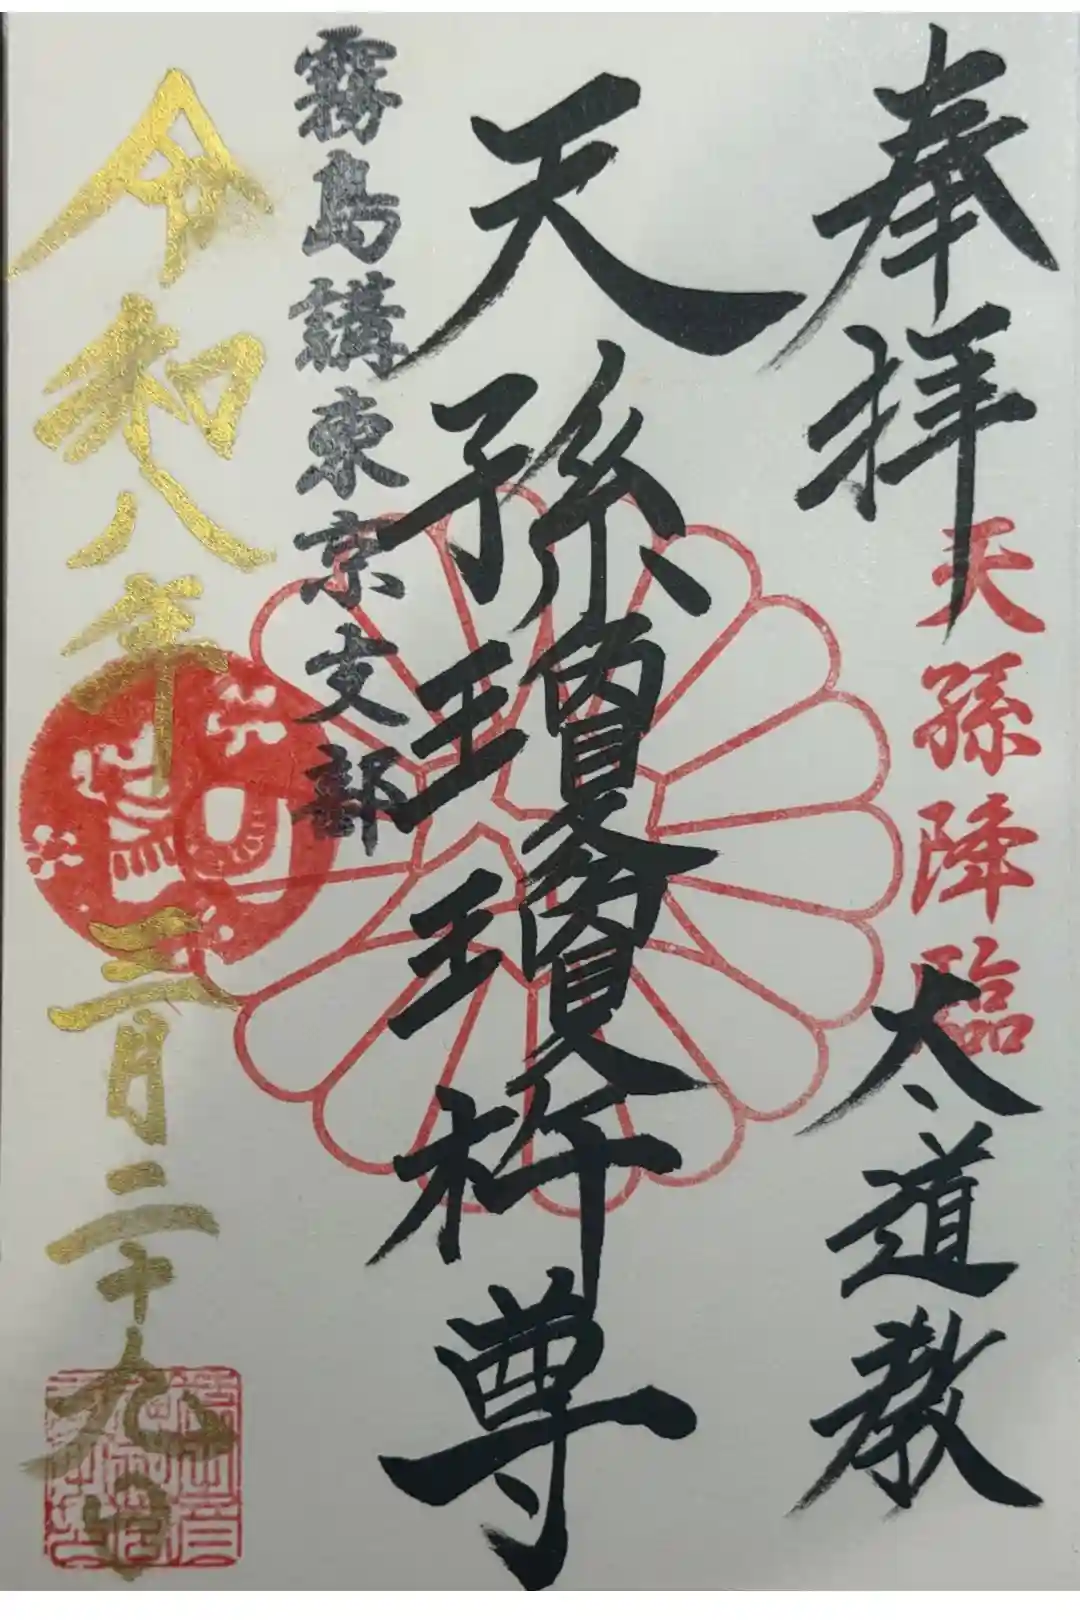 奉拝
天孫降臨
太道教
天孫瓊瓊杵尊
霧島講東京支部
令和八年
三月二十九日